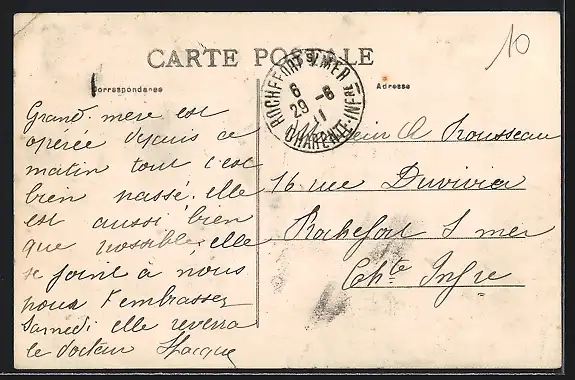 CARTE POSTALE
Correspondance
Adresse
10
ROCHEFORT S/ MER
6
29 -6
11
CHARENTE-INFRE
Grand. mere est
opérée depuis ce
matin tout c'est
bien passé. elle
est aussi bien
que possible. elle
se joint à nous
pour t'embrasser
Samedi elle reverra
le docteur
Monsieur A Rousseau
16 rue Duvivier
Rochefort S mer
Chte Infre